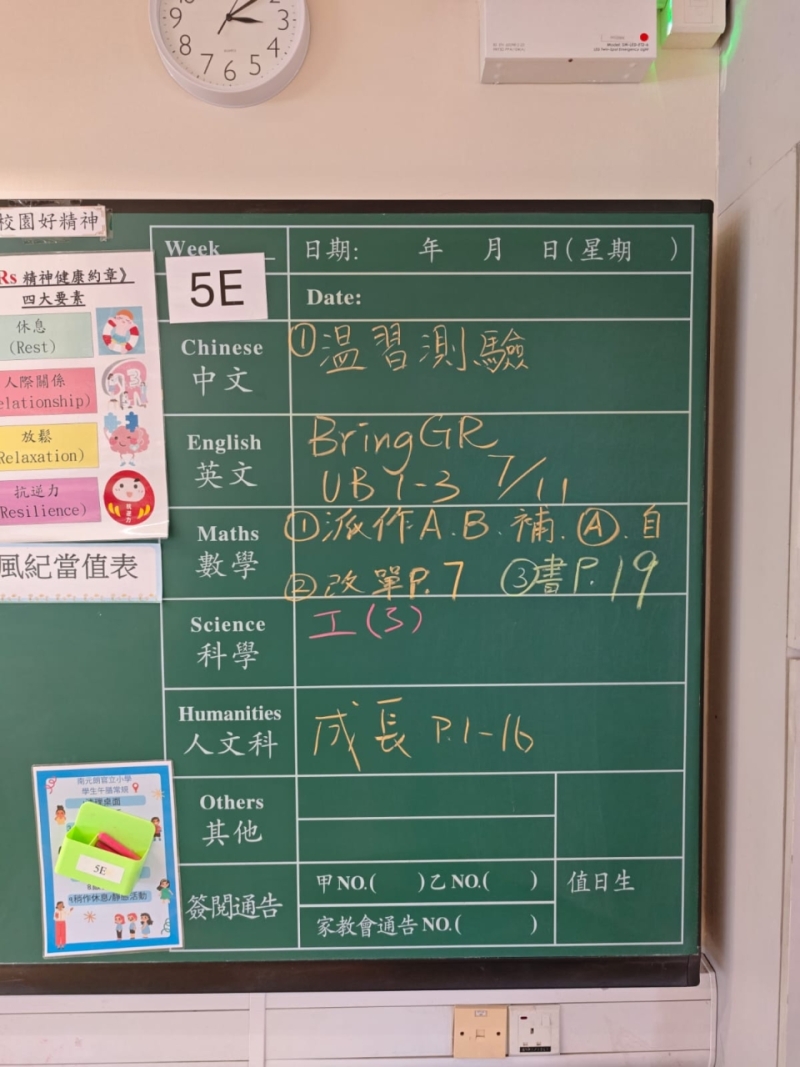 2
3
4
5
6
7
8
9
QUARTZ
校園好精神
Rs 精神健康約章》
四大要素
休息
(Rest)
人際關係
elationship)
放鬆
Relaxation)
抗逆力
Resilience)
風紀當值表
Week
5E
日期: 年 月 日(星期 )
Date:
Chinese
中文
①温習測驗
English
英文
Bring GR
UB 1-3 7/11
Maths
數學
①派作A.B.補.Ⓐ.自
②改單P.7 ③書P.19
Science
科學
工(3)
Humanities
人文科
成長 P.1-16
Others
其他
簽閱通告
甲NO.( )乙NO.( )
家教會通告NO.( )
值日生
南元朗官立小學
學生午膳常規
桌面
5E
稍作休息/靜態活動